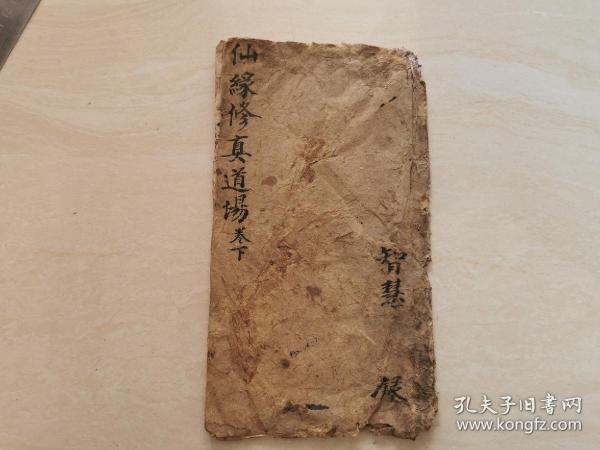 仙緣修真道場卷下
智慧
孔夫子旧书网
www.kongfz.com